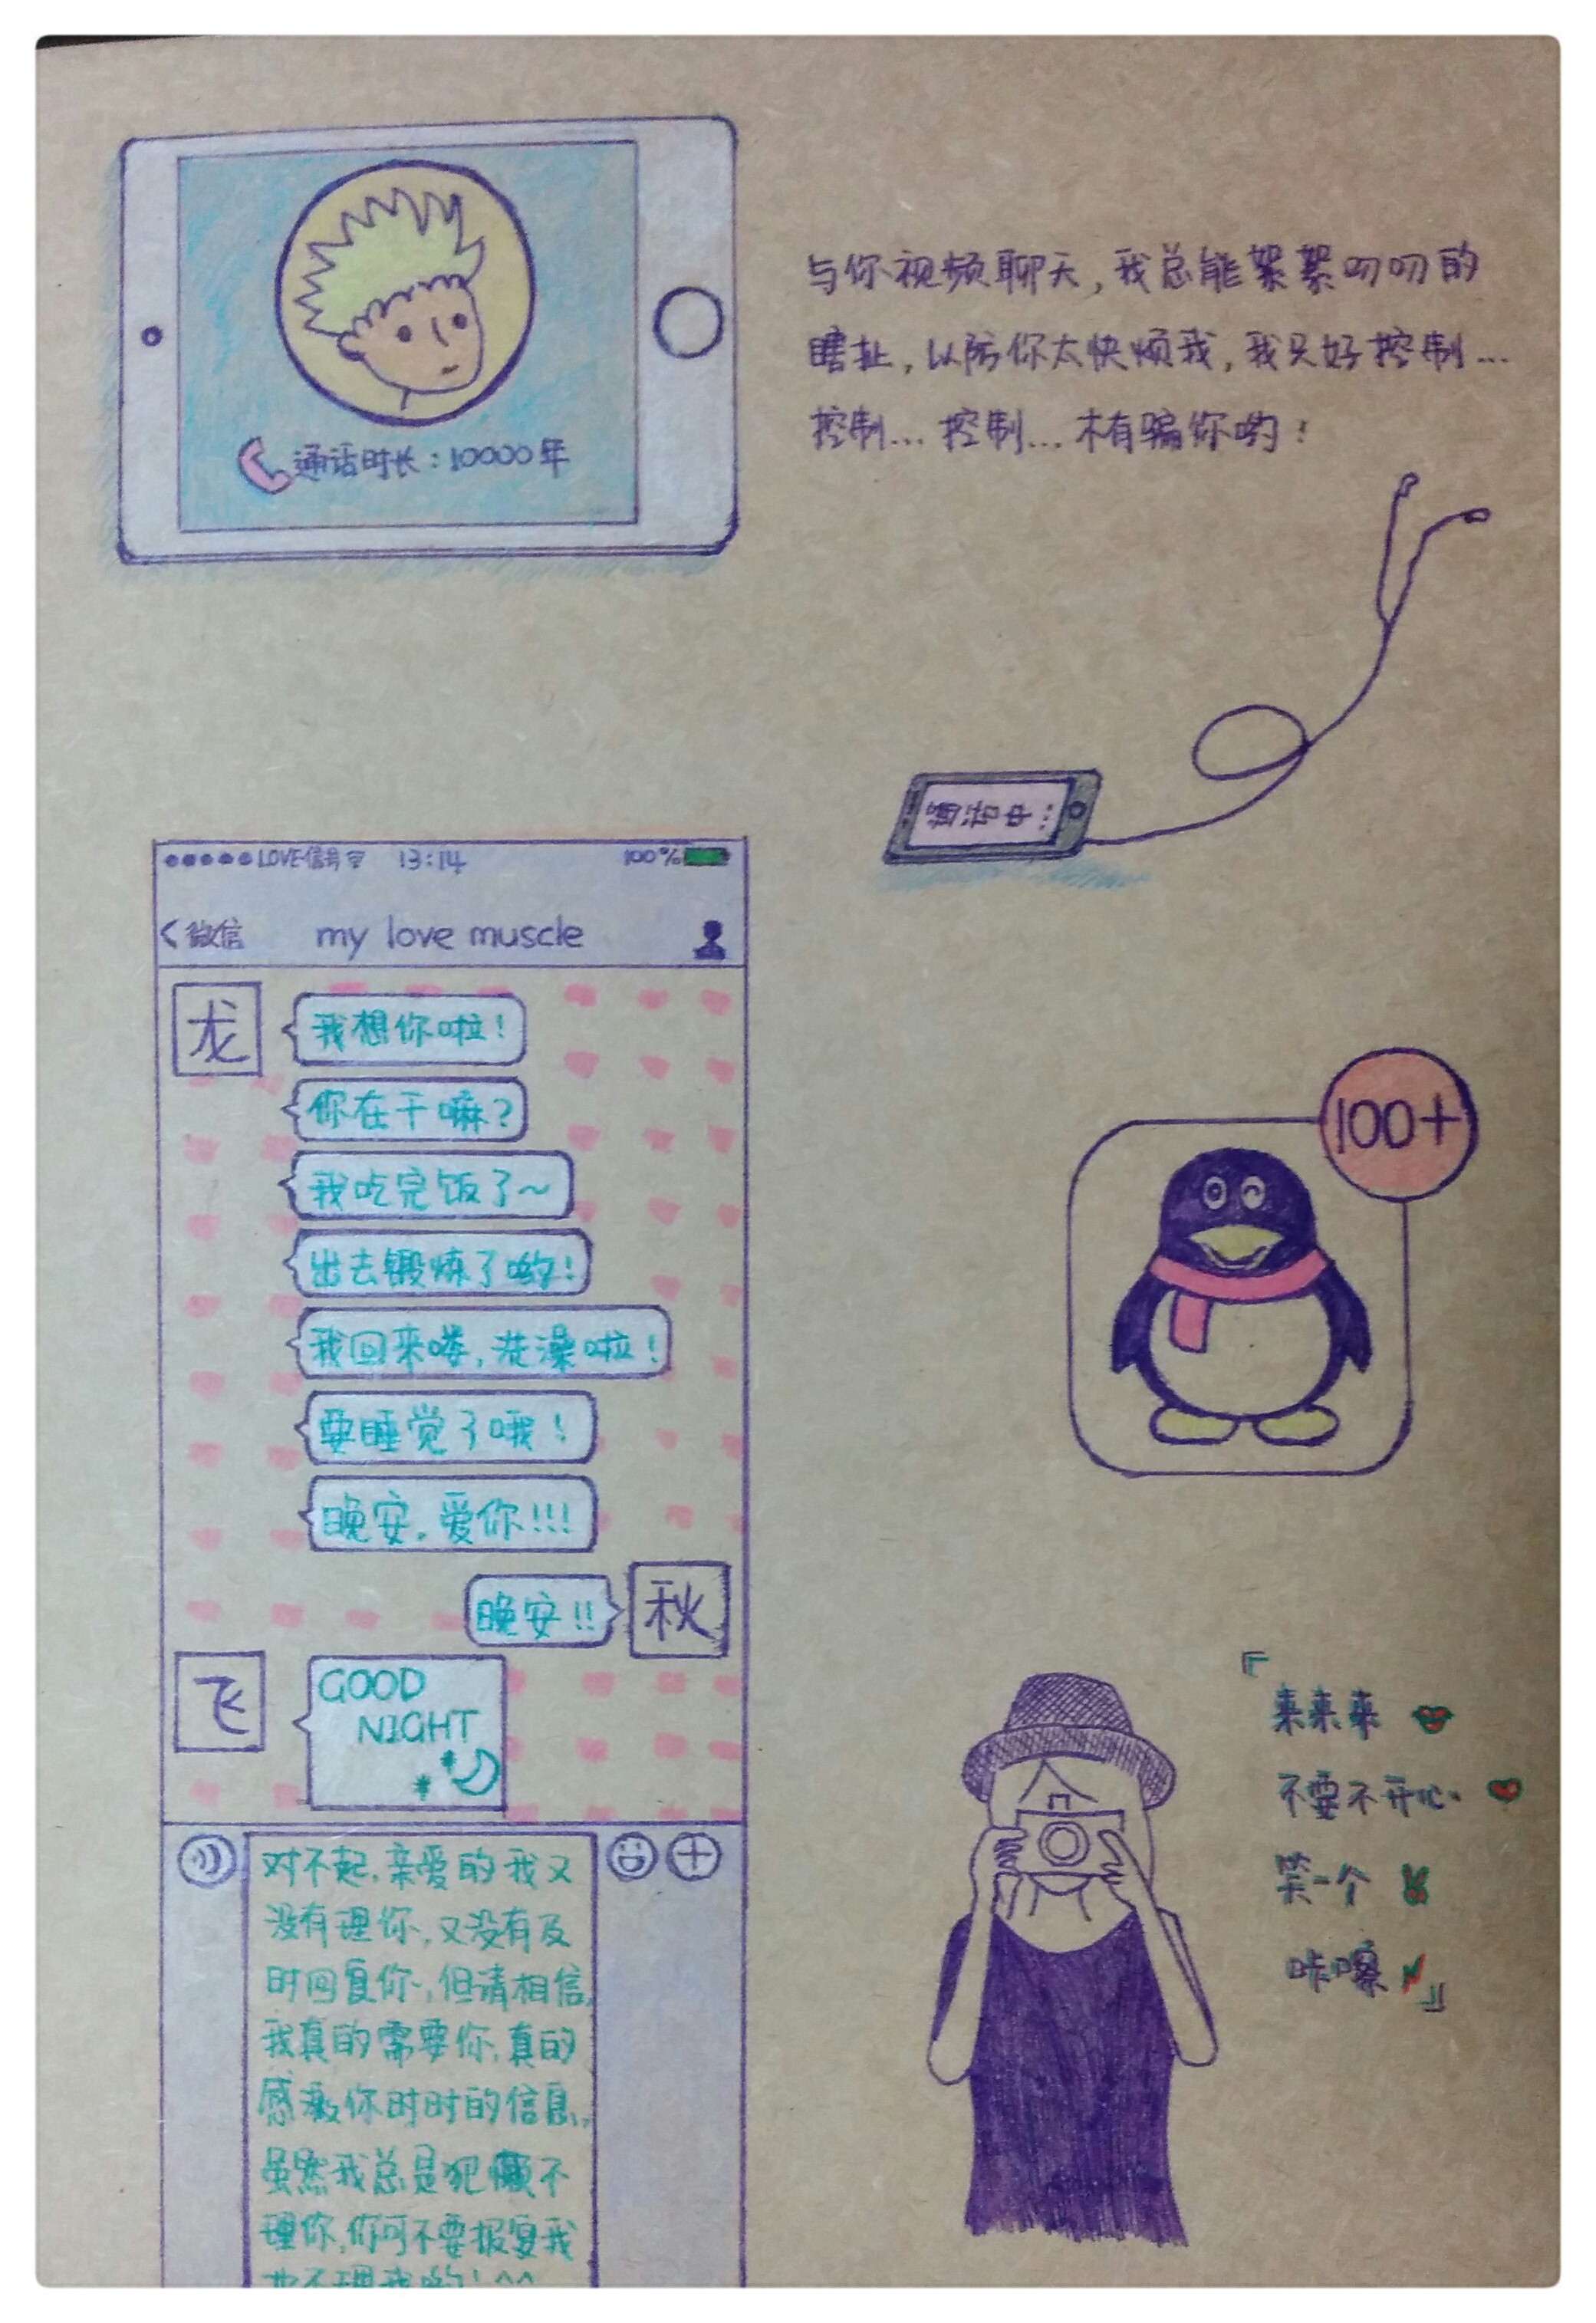 与你视频聊天，我总能絮絮叨叨的
瞎扯，以防你太快烦我，我只好控制...
控制...控制...木有骗你哟！
通话时长：10000年
通话中...
LOVE信号 13:14 100%
<微信 my love muscle
龙
我想你啦！
你在干嘛？
我吃完饭了～
出去锻炼了哟！
我回来喽，洗澡啦！
要睡觉了哦！
晚安，爱你!!!
晚安!!
秋
飞
GOOD
NIGHT
对不起，亲爱的我又
没有理你，又没有及
时回复你，但请相信，
我真的需要你，真的
感激你时时的信息，
虽然我总是犯懒不
理你，你可不要报复我
也不理我哟！^^
100+
「
来来来
不要不开心
笑一个
咔嚓
」